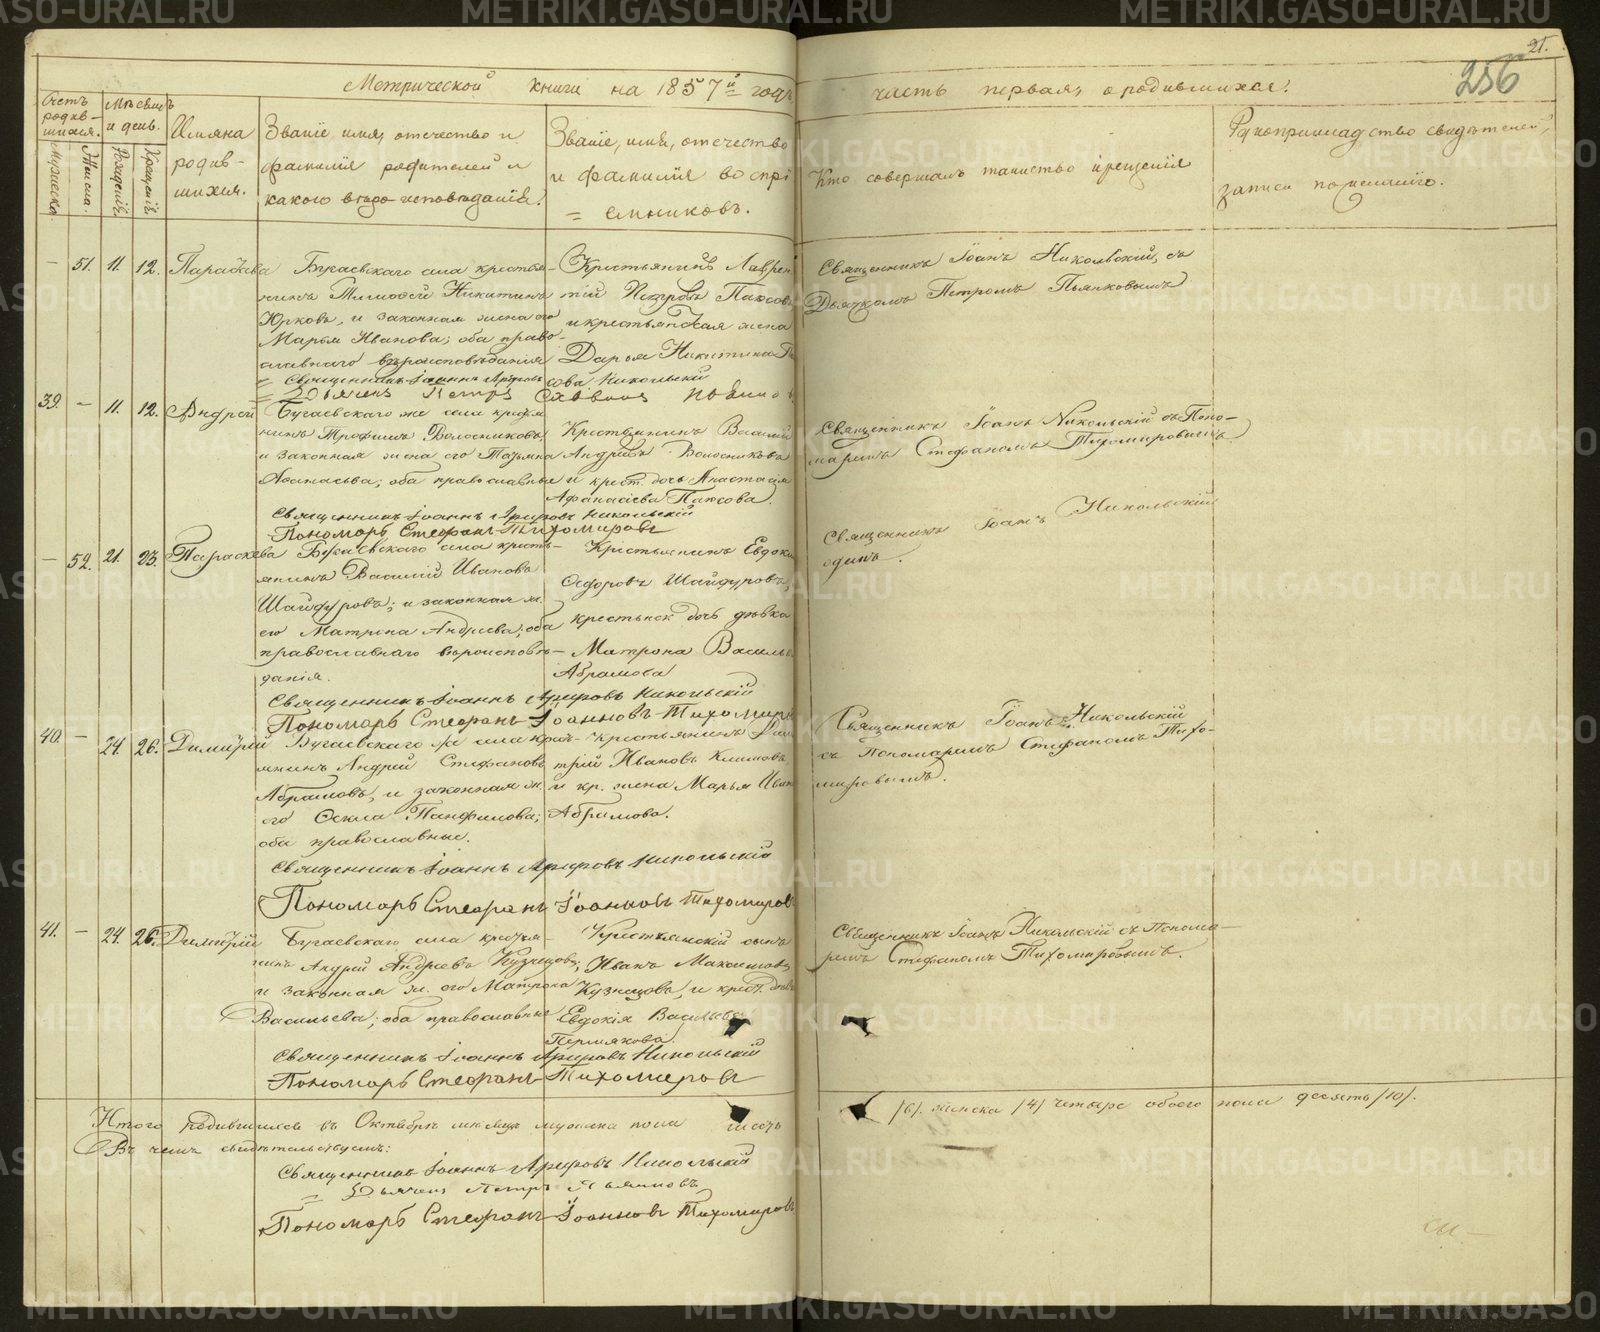 Метрической книги на 1857й годъ
часть первая, о родившихся.
21.
256
Счетъ родив-шихся.
Мѣсяцъ и день.
Имяна родив-шихся.
Званіе, имя, отчество и фамилія родителей и какого вѣроисповѣданія.
Званіе, имя, отчество и фамилія воспрі=емниковъ.
Кто совершалъ таинство крещенія
Рукоприкладство свидѣтелей записи по желанію.
Мужеска.
Женска.
Рожденія.
Крещенія.
51. 11. 12.
Бугаевскаго села крестья-
нинъ Тимофей Никитинъ
Юрковъ, и законная жена его
Марья Иванова; оба право-
славнаго вѣроисповѣданія
Крестьянинъ Лаврен
тій Петровъ
и крестьянская жена
Дарья Никитина
Священникъ Іоаннъ Никольскій, съ
Дьячкомъ Петромъ Пьянковымъ
Священникъ Іоаннъ Никольскій
39. - 11. 12. Андрей
Бугаевскаго же села крестья
нинъ Трофимъ Волосниковъ,
и законная жена его Татьяна
Аѳанасьева; оба православные
Крестьянинъ Василій
Андреевъ Волосниковъ
и крест. дочь Анастасія
Афанасіева
Священникъ Іоаннъ Никольскій съ Поно-
маремъ Стефаномъ Тихомировымъ
Священникъ Іоаннъ Никольскій
Пономарь Стефанъ Тихомировъ
- 52. 21. 23. Параскева
Бугаевскаго села кресть-
янинъ Василій Ивановъ
Шайдуровъ; и законная ж.
его Матрена Андреева; оба
православнаго вѣроисповѣ-
данія.
Крестьянинъ Евдоки
Ѳедоровъ Шайдуровъ,
крестьянск дочь дѣвка
Матрона Василь
Абрамова
Священникъ Іоаннъ Никольскій
одинъ.
Священникъ Іоаннъ Никольскій
Пономарь Стефанъ Іоанновъ Тихомиров
40. - 24. 26. Димитрій
Бугаевскаго села крест-
янинъ Андрей Стефановъ
Абрамовъ, и законная ж.
его Панфилова;
оба православные.
крестьянинъ Дими
трій Ивановъ Климовъ,
и кр. жена Марья Иван
Абрамова.
Священникъ Іоаннъ Никольскій
съ Пономаремъ Стефаномъ Тихо-
мировымъ.
Священникъ Іоаннъ Никольскій
Пономарь Стефанъ Іоанновъ Тихомировъ
41. - 24. 26. Димитрій
Бугаевскаго села крестья-
нинъ Андрей Андреевъ Кузнецовъ;
и законная ж. его Матрона
Васильева; оба православные
Крестьянскій сынъ
Иванъ Максимовъ
Кузнецовъ, и крест. дочь
Евдокія Васильева
Пермякова.
Священникъ Іоаннъ Никольскій съ Понома-
ремъ Стефаномъ Тихомировымъ.
Священникъ Іоаннъ Никольскій
Пономарь Стефанъ Тихомировъ
Итого родившихся въ Октябрѣ мѣсяцѣ мужеска пола шесть
/6/. женска /4/ четыре обоего пола десять /10/.
Въ чемъ свидѣтельствуемъ:
Священникъ Іоаннъ Никольскій
Дьячекъ Петръ Пьянковъ
Пономарь Стефанъ Іоанновъ Тихомировъ
METRIKI.GASO-URAL.RU